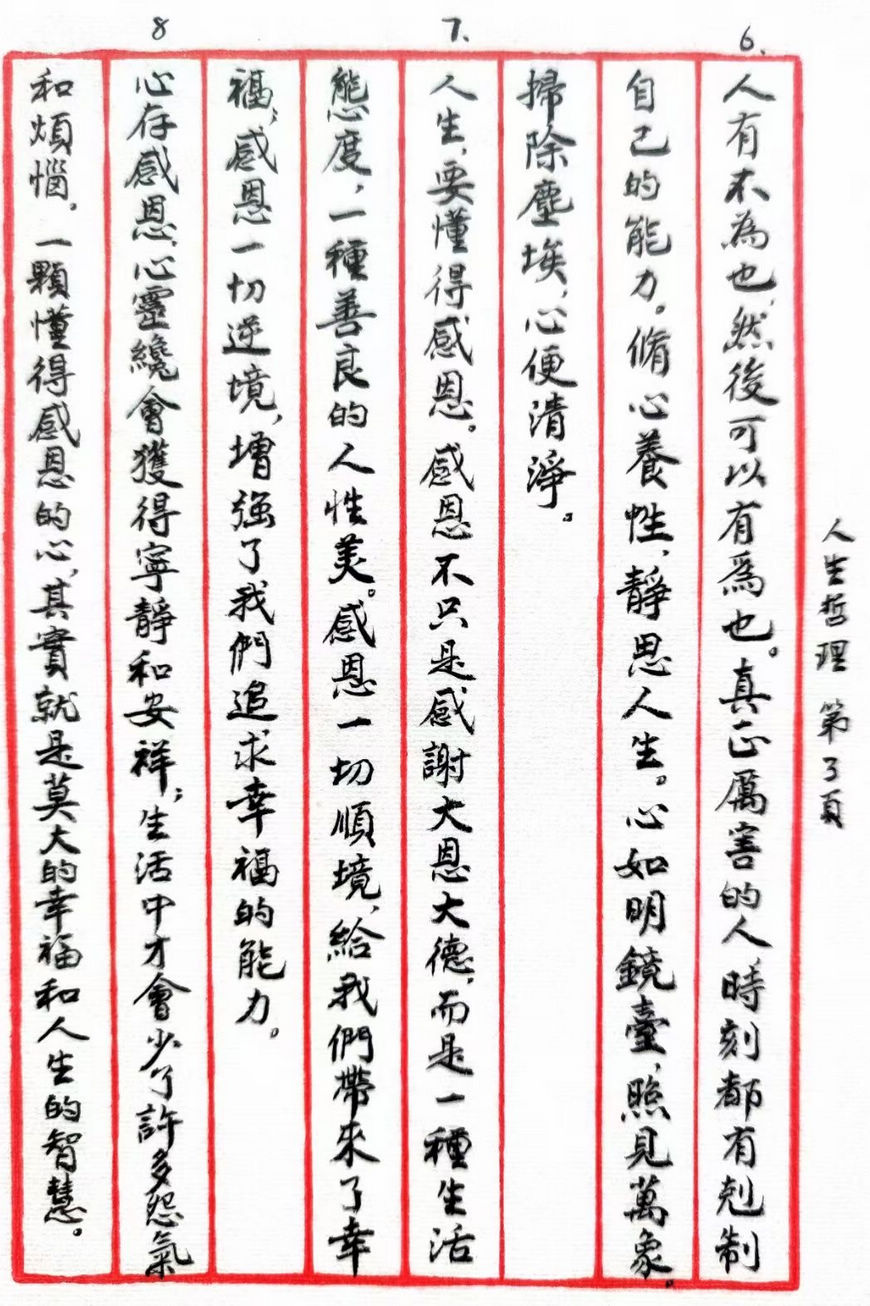 人生哲理 第3頁
6.
人有不為也，然後可以有爲也。真正厲害的人時刻都有剋制
自己的能力。脩心養性，靜思人生。心如明鏡臺，照見萬象。
掃除塵埃，心便清淨。
7.
人生，要懂得感恩。感恩不只是感謝大恩大德，而是一種生活
態度，一種善良的人性美。感恩一切順境，給我們帶來了幸
福；感恩一切逆境，增强了我們追求幸福的能力。
8
心存感恩，心靈纔會獲得寧靜和安祥；生活中才會少了許多怨氣
和煩惱。一顆懂得感恩的心，其實就是莫大的幸福和人生的智慧。